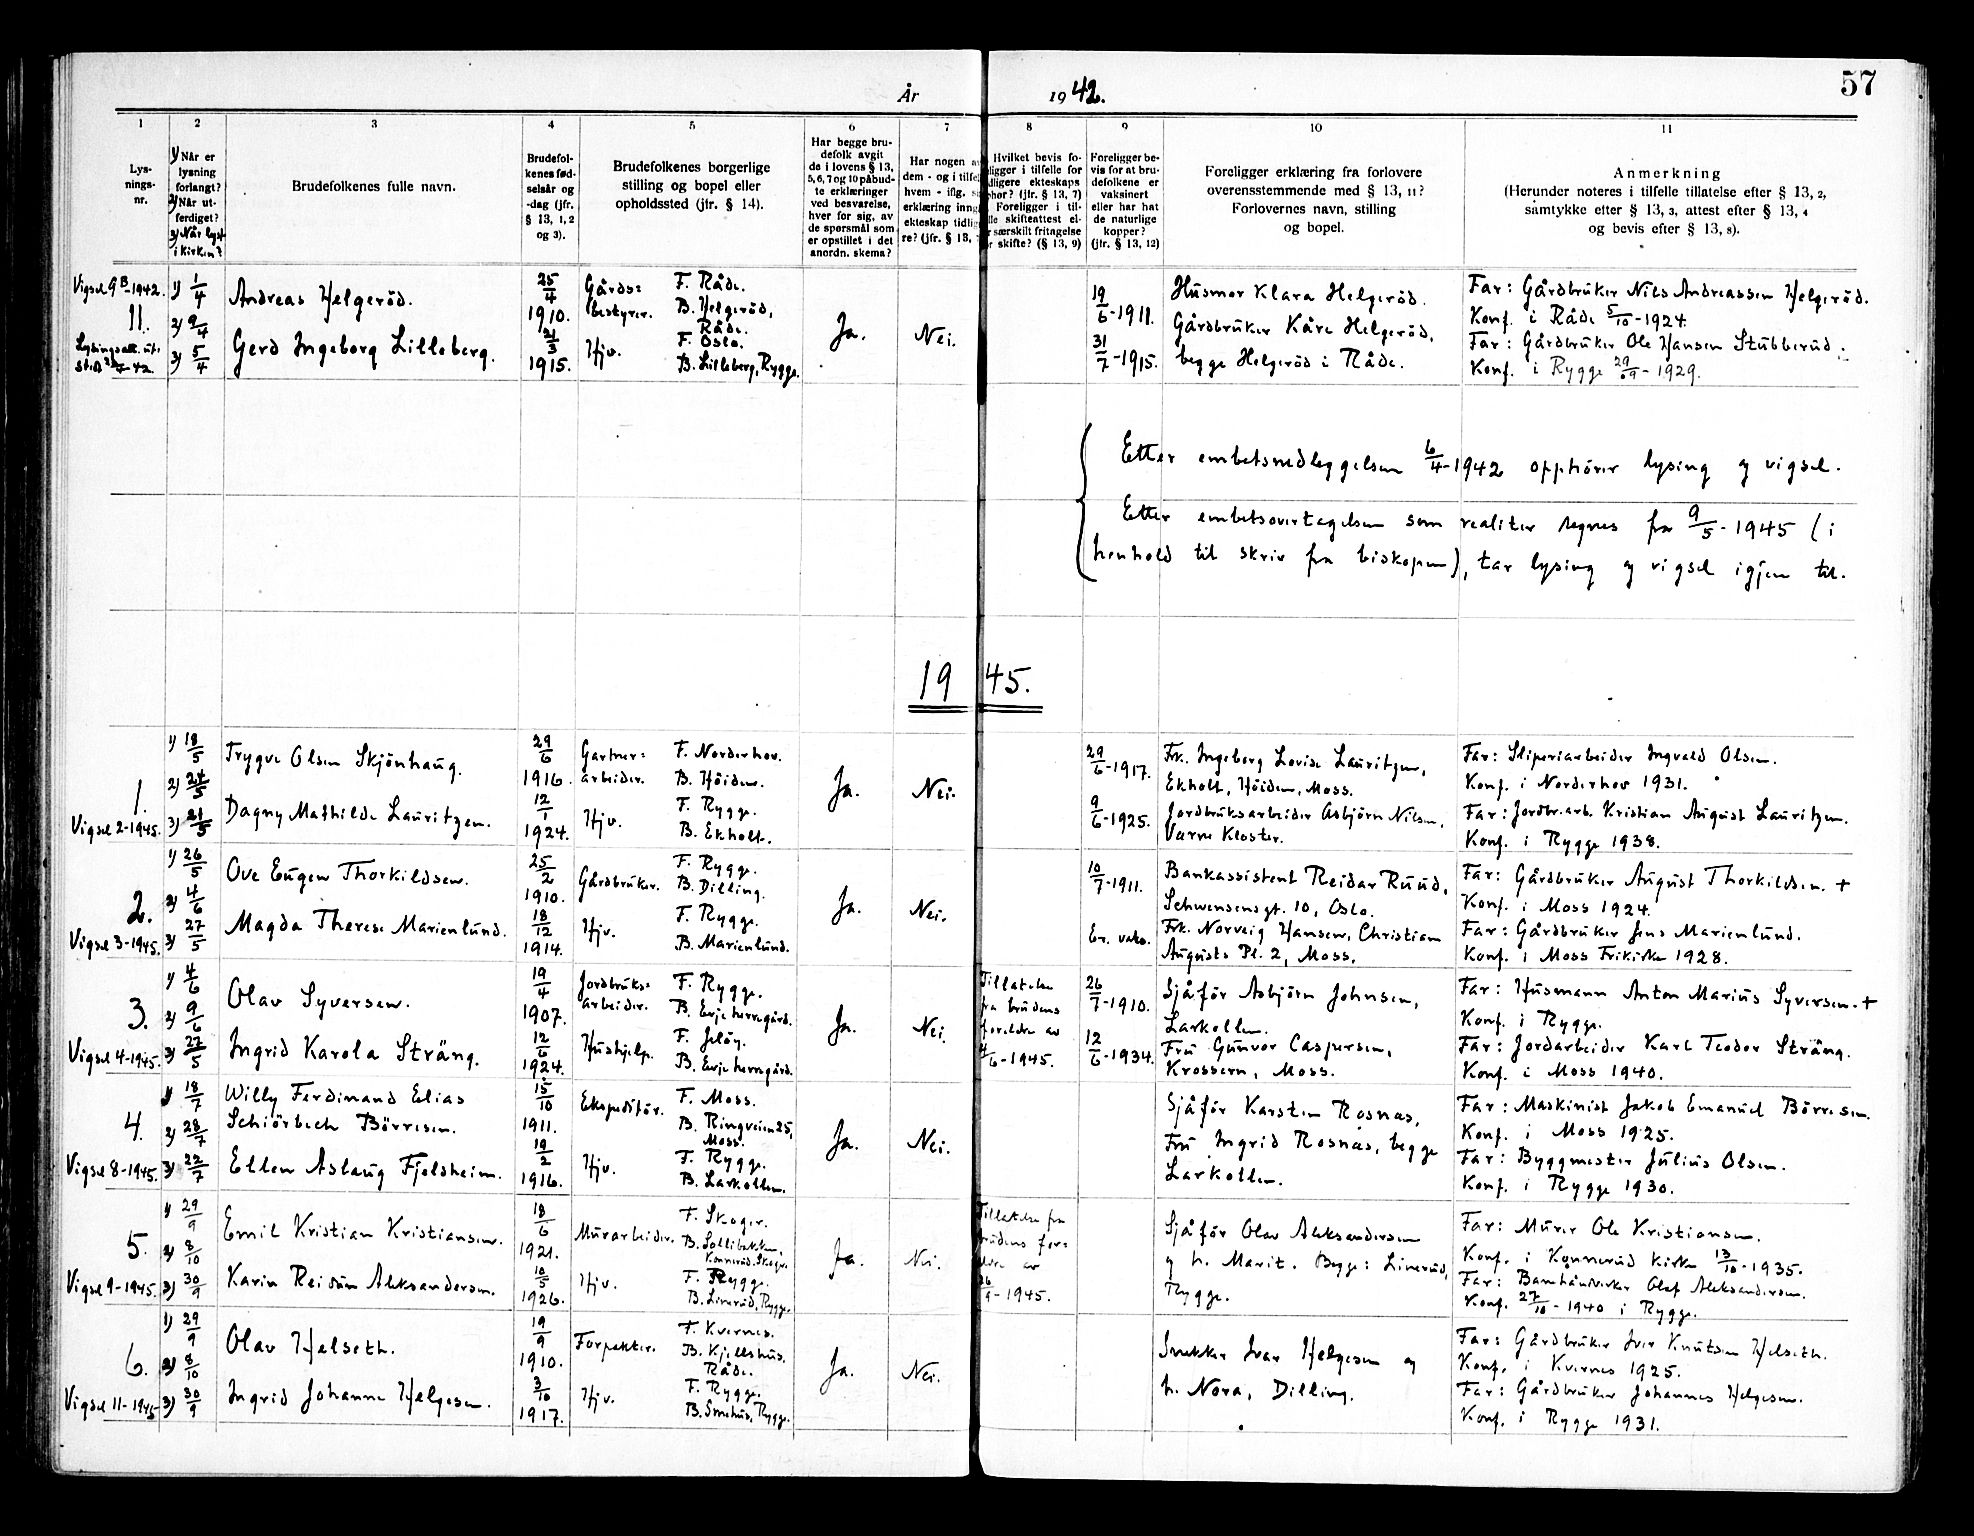 57
År 1942.
1
2
3
4
5
6
7
8
9
10
11
Lys-
nings-
nr.
1) Når er
lysning
forlangt?
2) Når ut-
ferdiget?
3) Når lyst
i kirken?
Brudefolkenes fulle navn.
Brudefol-
kenes fød-
selsår og
-dag (jfr.
§ 13, 1, 2
og 3).
Brudefolkenes borgerlige
stilling og bopel eller
opholdssted (jfr. § 14).
Har begge bru-
defolk avgit
de i lovens § 13,
5, 6, 7 og 10 påbud-
te erklæringer
ved besvarelse,
hver for sig, av
de spørsmål som
er opstillet i det
anordn. skema?
Har nogen av
dem - og i tilfe
hvem - iflg.
erklæring inng
ekteskap tidlig
re? (jfr. § 13,
Hvilket bevis fo-
ligger i tilfelle for
dligere ekteskaps
phør? (jfr. § 13, 7)
Foreligger i til-
lle skifteattest el-
r særskilt fritagelse
r skifte? (§ 13, 9)
Foreligger be-
vis for at bru-
defolkene er
vaksinert
eller har hat
de naturlige
kopper?
(jfr. § 13, 12)
Foreligger erklæring fra forlovere
overensstemmende med § 13, 11?
Forlovernes navn, stilling
og bopel.
Anmerkning
(Herunder noteres i tilfelle tillatelse efter § 13, 2,
samtykke efter § 13, 3, attest efter § 13, 4
og bevis efter § 13, 8).
Vigsel 9B-1942.
11.
1) 1/4
2) 9/4
3) 5/4
Andreas Helgeröd.
Gerd Ingeborg Lilleberg.
25/4
1910.
21/3
1915.
Gårds=
bestyrer.
F. Råde.
B. Helgeröd,
Råde.
Hjv.
F. Oslo.
B. Lilleberg, Rygge.
Ja.
Nei.
19/6-1911.
31/7-1915.
Husmor Klara Helgeröd.
Gårdbruker Kåre Helgeröd,
begge Helgeröd i Råde.
Far: Gårdbruker Nils Andreassen Helgeröd.
Konf. i Råde 5/10-1924.
Far: Gårdbruker Ole Hansen Stubberud.
Konf. i Rygge 29/09-1929.
Etter embetsnedleggelsen 6/4-1942 opphörer lysing og vigsel.
Etter embetsovertagelsen som realiter regnes fra 9/5-1945 (i
henhold til skriv fra biskopen), tar lysing og vigsel igjen til.
1945.
1.
Vigsel 2-1945.
1) 18/5
2) 24/5
3) 21/5
Trygve Olsen Skjönhaug.
Dagny Mathilde Lauritzen.
29/6
1916.
12/1
1924.
Gartner=
arbeider.
F. Norderhov.
B. Höiden.
Hjv.
F. Rygge.
B. Ekholt.
Ja.
Nei.
29/6-1917.
9/6-1925.
Frk. Ingeborg Lovise Lauritzen,
Ekholt, Höiden, Moss.
Jordbruksarbeider Asbjörn Nilsen,
Varne Kloster.
Far: Sliperiarbeider Ingvald Olsen.
Konf. i Norderhov 1931.
Far: Jordbr.arb. Kristian August Lauritzen.
Konf. i Rygge 1938.
2.
Vigsel 3-1945.
1) 26/5
2) 4/6
3) 27/5
Ove Eugen Thorkildsen.
Magda Therese Marienlund.
25/2
1910.
18/12
1914.
Gårdbruker.
F. Rygge.
B. Dilling.
Hjv.
F. Rygge.
B. Marienlund.
Ja.
Nei.
10/7-1911.
Er. vaks.
Bankassistent Reidar Ruud,
Schwensensgt. 10, Oslo.
Frk. Norveig Hansen, Christian
Augusts Pl. 2, Moss.
Far: Gårdbruker August Thorkildsen. +
Konf. i Moss 1924.
Far: Gårdbruker Jens Marienlund.
Konf. i Moss Frikirke 1928.
3.
Vigsel 4-1945.
1) 4/6
2) 9/6
3) 27/5
Olav Syversen.
Ingrid Karola Sträng.
19/4
1907.
12/6
1924.
Jordbruks=
arbeider.
F. Rygge.
B. Evje herregård.
Hushjelp.
F. Jelöy.
B. Evje herregård.
Ja.
Nei.
Tillatelse
fra brudens
foreldre av
4/6-1945.
26/7-1910.
12/6-1934.
Sjåför Asbjörn Johnsen,
Larkollen.
Fru Gunvor Caspersen,
Krossern, Moss.
Far: Husmann Anton Marius Syversen. +
Konf. i Rygge.
Far: Jordarbeider Karl Teodor Sträng.
Konf. i Moss 1940.
4.
Vigsel 8-1945.
1) 18/7
2) 28/7
3) 22/7
Willy Ferdinand Elias
Schiörbech Börresen.
Ellen Aslaug Fjeldheim.
15/10
1911.
19/2
1916.
Ekspeditör.
F. Moss.
B. Ringveien 25,
Moss.
Hjv.
F. Rygge.
B. Larkollen.
Ja.
Nei.
Sjåför Karsten Rosnæs,
Fru Ingrid Rosnæs, begge
Larkollen.
Far: Maskinist Jakob Emanuel Börresen.
Konf. i Moss 1925.
Far: Byggmester Julius Olsen.
Konf. i Rygge 1930.
5.
Vigsel 9-1945.
1) 29/9
2) 8/10
3) 30/9
Emil Kristian Kristiansen.
Karin Reidun Aleksandersen.
18/6
1921.
10/5
1926.
Murarbeider.
F. Skoger.
B. Sollibakken,
Konnerud, Skoger.
Hjv.
F. Rygge.
B. Linerud, Rygge.
Ja.
Nei.
Tillatelse fra
brudens for=
eldre av
26/9-1945.
Sjåför Olav Aleksandersen
og h. Marit. Begge: Linerud,
Rygge.
Far: Murer Ole Kristiansen.
Konf. i Konnerud kirke 13/10-1935.
Far: Olaf Aleksandersen.
Konf. 27/10-1940 i Rygge.
6.
Vigsel 11-1945
1) 29/9
2) 8/10
3) 30/9
Olav Helseth.
Ingrid Johanne Helgesen.
19/9
1910.
3/10
1917.
Forpakter.
F. Kvernes.
B. Kjellshus.
Råde.
Hjv.
F. Rygge.
B. Smehus, Rygge.
Ja.
Nei.
Snekker Ivar Helgesen og
h. Nora, Dilling.
Far: Gårdbruker Iver Knutsen Helseth.
Konf. i Kvernes 1925.
Far: Gårdbruker Johannes Helgesen.
Konf. i Rygge 1931.